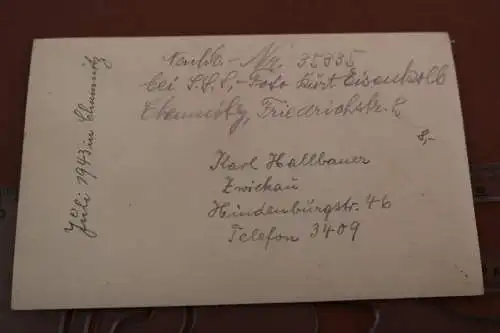 Nr. 35835
bei Foto Kurt Eisenkolb
Chemnitz, Friedrichstr.
8,-
Karl Hallbauer
Zwickau
Hindenburgstr. 46
Telefon 3409
Juli 1943 in Chemnitz